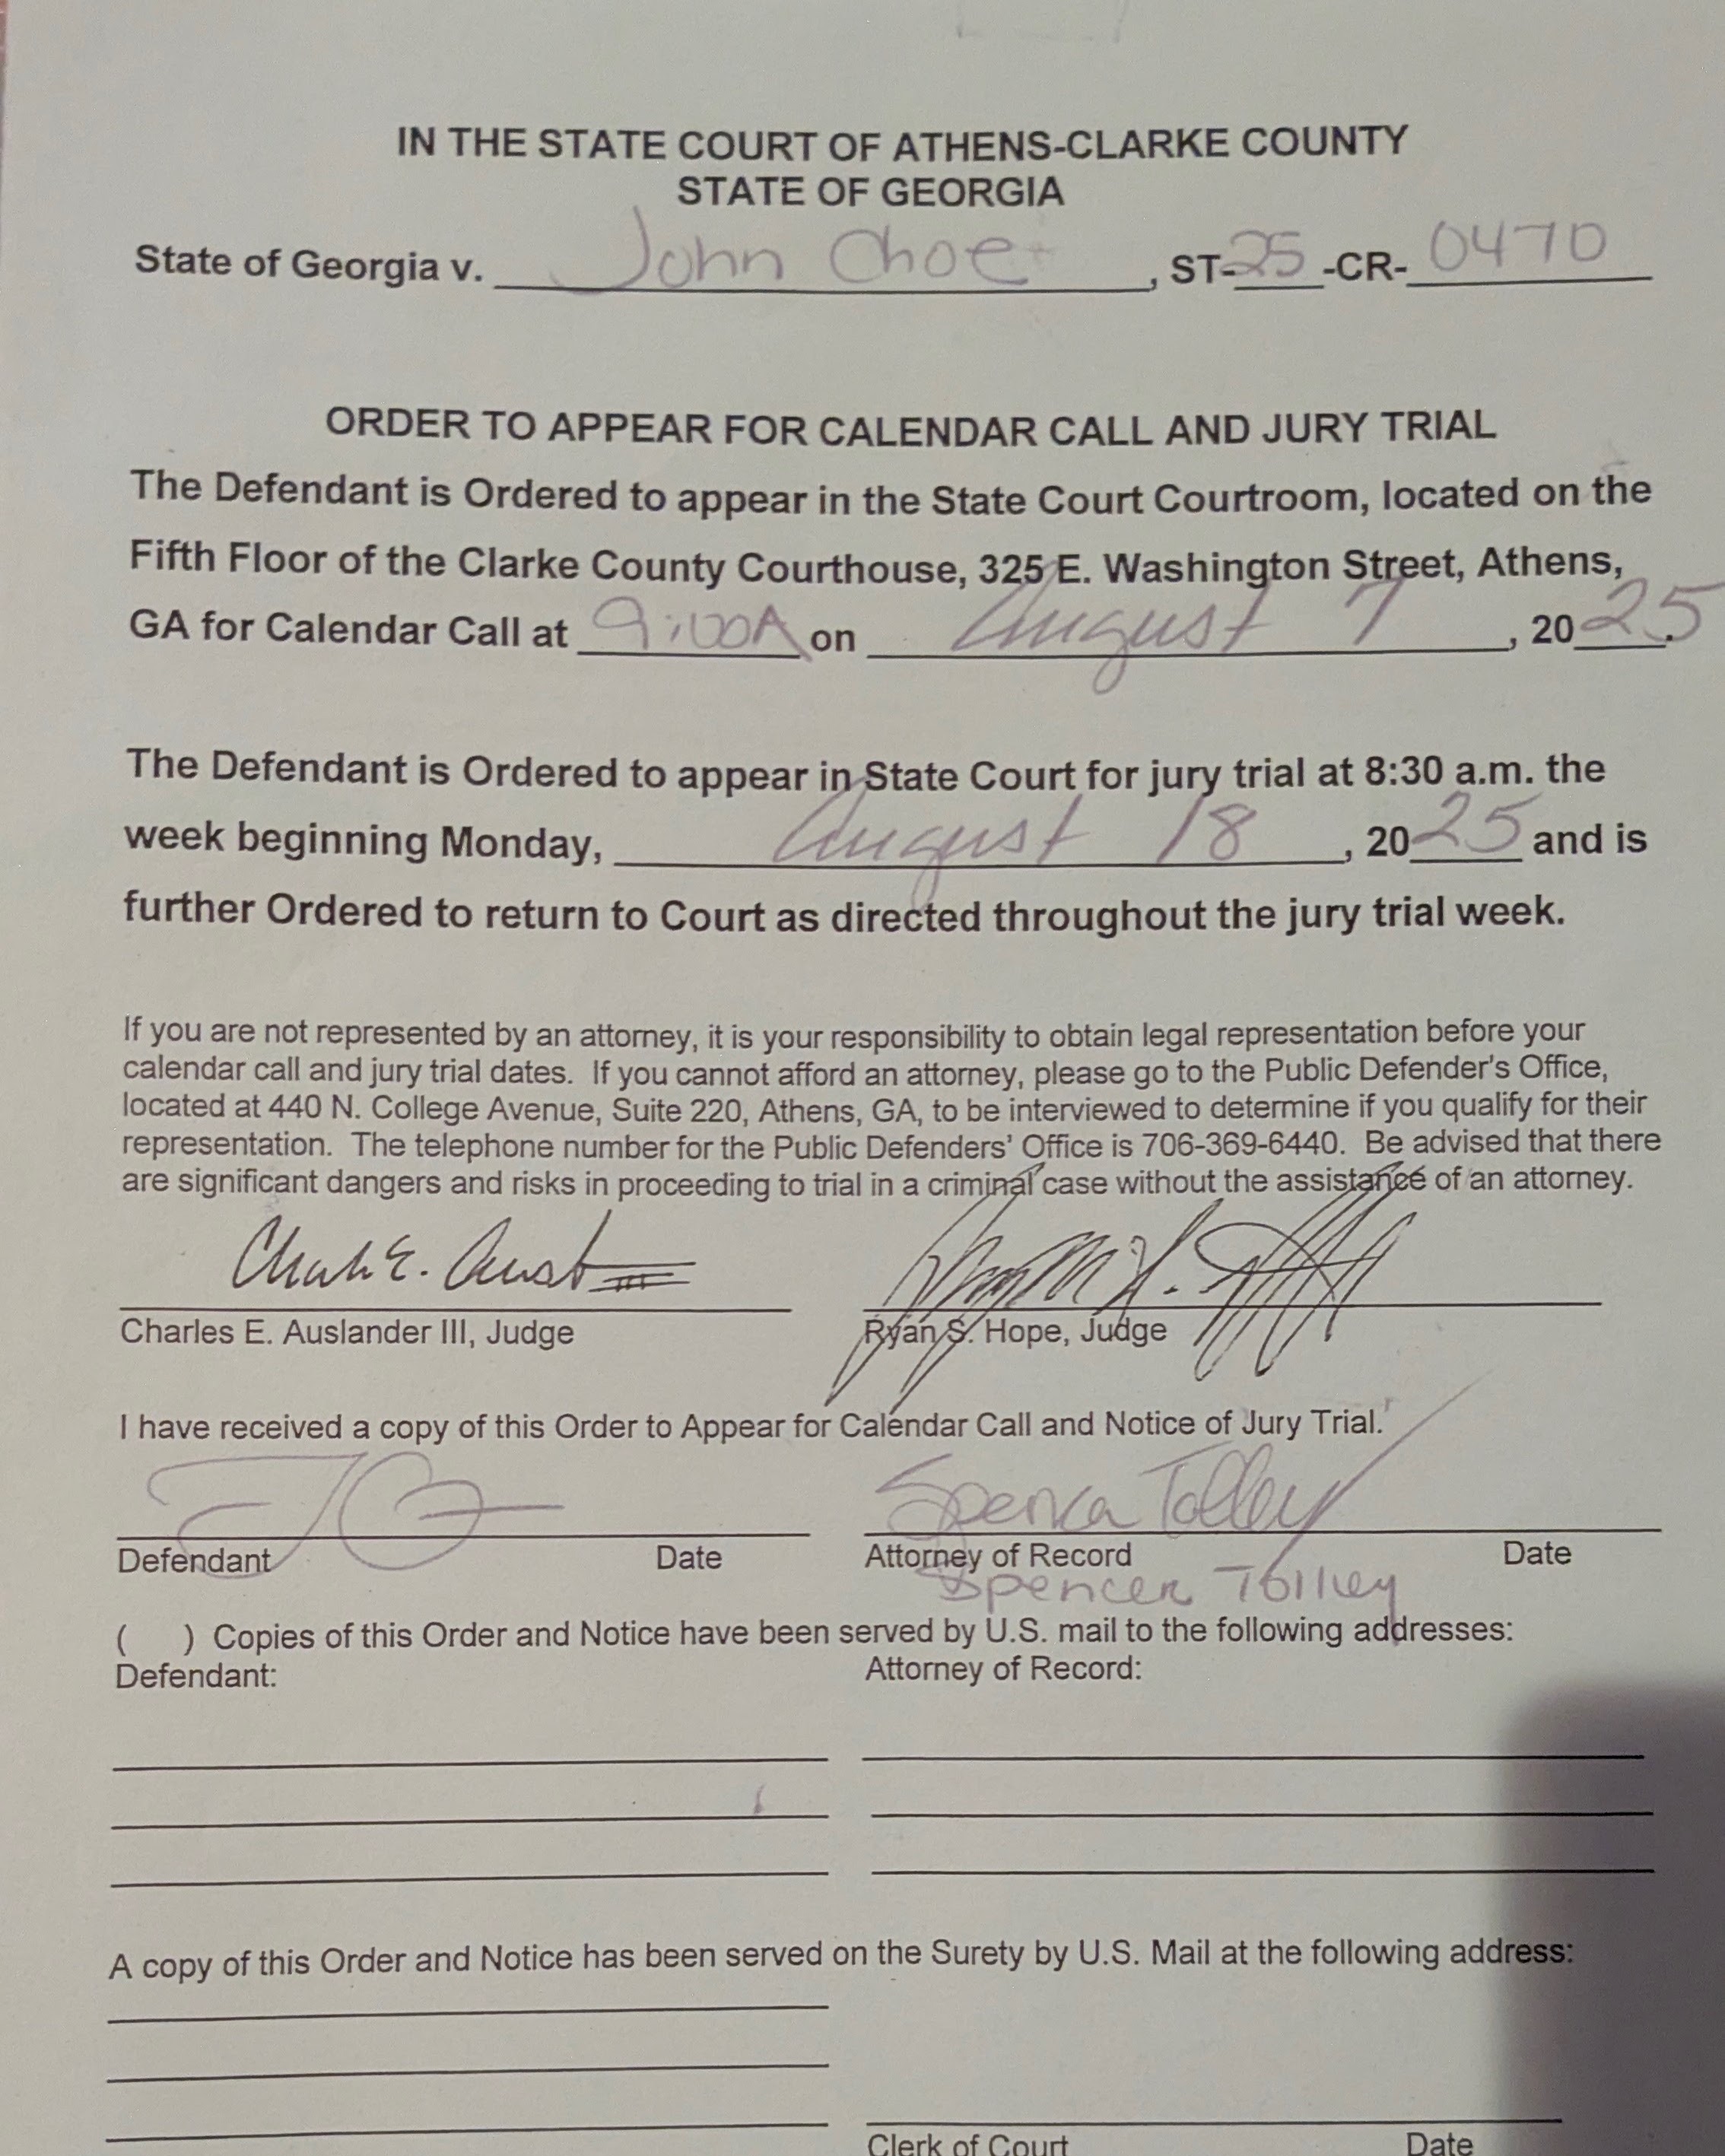 IN THE STATE COURT OF ATHENS-CLARKE COUNTY
STATE OF GEORGIA
State of Georgia v. John Choe, ST-25-CR-0470
ORDER TO APPEAR FOR CALENDAR CALL AND JURY TRIAL
The Defendant is Ordered to appear in the State Court Courtroom, located on the
Fifth Floor of the Clarke County Courthouse, 325 E. Washington Street, Athens,
GA for Calendar Call at 9:00A on August 7, 2025.
The Defendant is Ordered to appear in State Court for jury trial at 8:30 a.m. the
week beginning Monday, August 18, 2025 and is
further Ordered to return to Court as directed throughout the jury trial week.
If you are not represented by an attorney, it is your responsibility to obtain legal representation before your
calendar call and jury trial dates. If you cannot afford an attorney, please go to the Public Defender's Office,
located at 440 N. College Avenue, Suite 220, Athens, GA, to be interviewed to determine if you qualify for their
representation. The telephone number for the Public Defenders' Office is 706-369-6440. Be advised that there
are significant dangers and risks in proceeding to trial in a criminal case without the assistance of an attorney.
Charles E. Auslander III, Judge Ryan S. Hope, Judge
I have received a copy of this Order to Appear for Calendar Call and Notice of Jury Trial.
Spencer Tolley
Defendant Date Attorney of Record Date
Spencer Tolley
( ) Copies of this Order and Notice have been served by U.S. mail to the following addresses:
Defendant: Attorney of Record:
A copy of this Order and Notice has been served on the Surety by U.S. Mail at the following address:
Clerk of Court Date